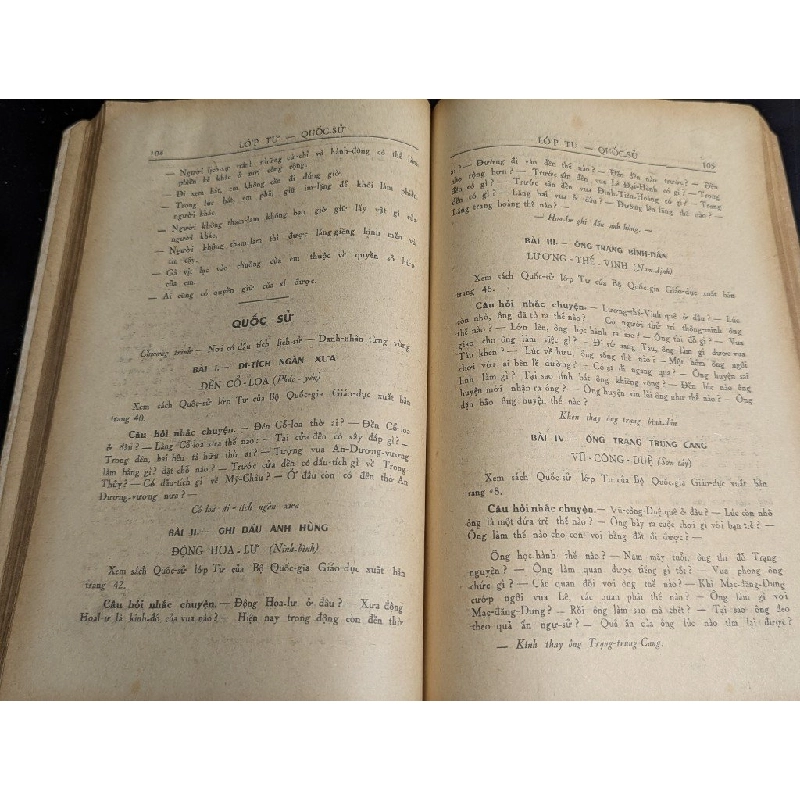 104
LỚP TƯ — QUỐC-SỬ
— Đi xem hát, em không cần đi đúng giờ.
— Trong lúc hát em phải giữ im-lặng để khỏi làm phiền
người khác.
— Người không tham-lam không bao giờ giữ lấy vật gì của
người khác.
— Người không tham-lam thì được láng-giềng kính mến và
tin cậy.
của em.
— Ai cũng có quyền giữ của rơi được.
QUỐC SỬ
Chương-trình — Nơi có dấu tích lịch-sử — Danh-nhân từng vùng
BÀI I. — DI-TÍCH NGÀN XƯA
ĐỀN CỔ-LOA (Phúc-yên)
Xem sách Quốc-sử lớp Tư của Bộ Quốc-gia Giáo-dục xuất bản
trang 40.
Câu hỏi nhắc chuyện. — Đền Cổ-loa thờ ai? — Đền Cổ loa
ở đâu? — Làng Cổ-loa thế nào? — Tại cửa đền có xây đắp gì? —
Trong đền, hai bên tả hữu thờ ai? — Tượng vua An-Dương-vương
làm bằng gì? đặt chỗ nào? — Trước cửa đền có dấu-tích gì về Trọng
Thủy? — Có dấu-tích gì về Mỵ-Châu? — Ở đâu còn có đền thờ An
Dương-vương nữa? —
Cổ-loa di-tích ngàn xưa
BÀI II. — GHI DẤU ANH HÙNG
ĐỘNG HOA-LƯ (Ninh-bình)
Xem sách Quốc-sử lớp Tư của Bộ Quốc-gia Giáo-dục xuất bản
trang 42.
Câu hỏi nhắc chuyện. — Động Hoa-lư ở đâu? — Xưa động
Hoa-lư là kinh-đô của vua nào? — Hiện nay trong động còn đền thờ
LỚP TƯ — QUỐC-SỬ
105
ai? — Đường đi vào đền thế nào? — Đến đền nào trước? — Đền
nào rộng hơn? — Trước sân đền vua Lê Đại-Hành có gì? — Trong
đền có gì? — Trước sân đền vua Đinh-Tiên-Hoàng có gì? — Trong
đền có gì? — Lăng hai vua ở đâu? — Đường lên lăng thế nào? —
Lăng trang hoàng thế nào? —
— Hoa-lư ghi dấu anh hùng. —
BÀI III. — ÔNG TRẠNG BÌNH-DÂN
LƯƠNG-THẾ-VINH (Nam-định)
Xem sách Quốc-sử lớp Tư của Bộ Quốc-gia Giáo-dục xuất bản
trang 45.
Câu hỏi nhắc chuyện. — Lương-thế-Vinh quê ở đâu? — Lúc
còn nhỏ, ông đã tỏ ra thế nào? — Coi người tuấn tú thông-minh ông
thế nào? — Lớn lên, ông học hành ra sao? — Ông thi đỗ gì? — Vua
giao cho ông làm việc gì? —
Thú khen? — Lúc về hưu, ông sống thế nào? — Một hôm ông ngồi
chơi với ai bên lề đường? — Có ai đi ngang qua? — Ông huyện sai
lính làm gì? Tại sao lính bắt ông khiêng võng? — Đến lúc nào ông
huyện mới nhận ra ông? — Ông huyện van lạy ông như thế nào? — Ông
dạy bảo ông huyện thế nào?
Khen thay ông trạng bình-dân
BÀI IV. — ÔNG TRẠNG TRUNG CANG
VŨ-CÔNG-DUỆ (Sơn tây)
Xem sách Quốc-sử lớp Tư của Bộ Quốc-gia Giáo-dục xuất bản
trang 48.
Câu hỏi nhắc chuyện. — Vũ-công-Duệ quê ở đâu? — Lúc còn nhỏ
ông là một đứa trẻ thế nào? — Ông bày ra cuộc chơi gì với bạn trẻ? —
Ông làm thế nào cho con voi bằng đất đi được? —
Ông học hành thế nào? — Năm mấy tuổi, ông thi đỗ Trạng
nguyên? — Ông làm quan được tiếng gì tốt? — Vua phong ông
chức gì? — Các quan đối với ông thế nào? — Khi Mạc-đăng-Dung
cướp ngôi vua Lê, các quan phải thế nào? — Ông làm gì với
Mạc-đăng-Dung? — Rồi ông làm sao mà chết? — Tại sao ông đeo
theo quả ấn ngự-sử? — Quả ấn của ông lúc nào tìm lại được?
— Kính thay ông Trạng-trung-Cang.